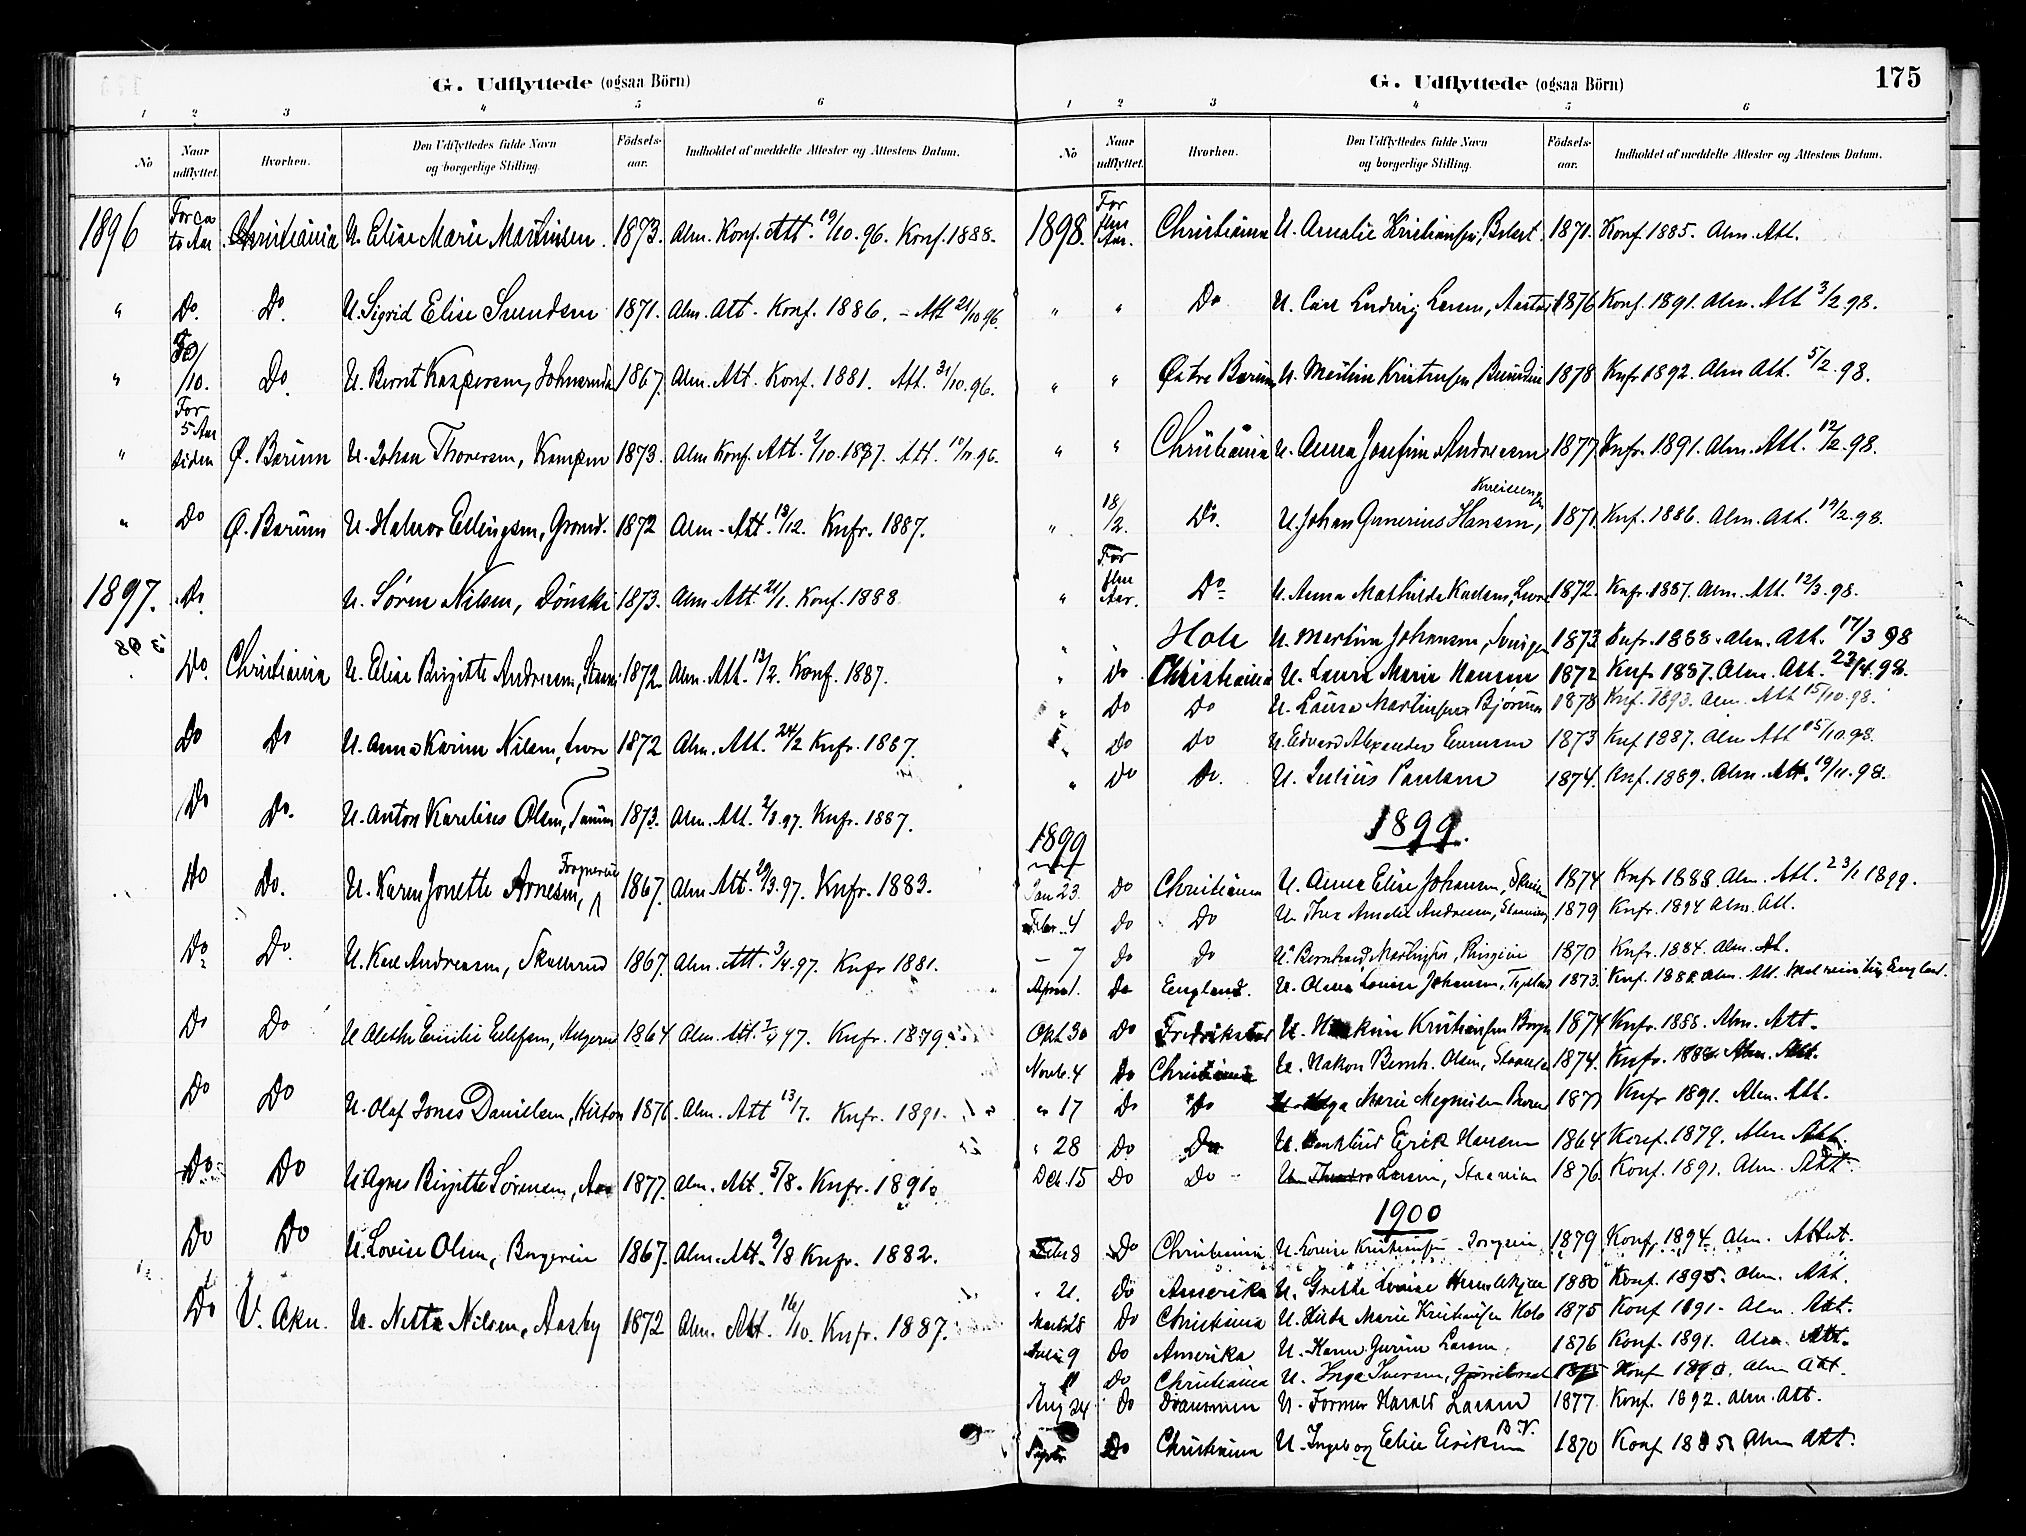 G. Udflyttede (ogsaa Börn)
1 2 3 4 5 6
No Naar udflyttet. Hvorhen. Den Udflyttedes fulde Navn og borgerlige Stilling. Födsels-aar. Indholdet af meddelte Attester og Attestens Datum.
1896 For ca to Aar Christiania U. Elise Marie Martinsen 1873. Alm. Konf. Att. 19/10. 96. Konf. 1888.
" Do. Do. U. Sigrid Elise Svendsen 1871. Alm. Att. Konf. 1886. - Att 21/10 96.
" /10. Do. U. Bernt Kaspersen, 1867. Alm. Att. Konf. 1881. Att. 31/10. 96.
" For 5 Aar siden Ø. Bærum U. Johan Thoresen, Kampen 1873. Alm Konf. Att. 2/10. 1887. Att. 96.
" Do Ø. Bærum U. Halvor Ellingsen, Grønd. 1872 Alm. Att. 13/12. Knfr. 1887.
1897. Do. U. Søren Nilsen, Dønski 1873. Alm Att. 21/1. Konf. 1888
Do. Christiania U. Elise Birgitte Andresen, 1872. Alm. Att. 13/2. Konf. 1887.
Do Do U. Anna Karine Nilsen, 1872 Alm. Att. 24/2 Knfr. 1887.
Do Do. U. Anton Karelius Olsen, Tanum 1873. Alm. Att. 2/3. 97. Knfr. 1887.
Do Do. U. Karen Jonette Arnesen, 1867. Alm Att. 29/3. 97. Knfr. 1883.
Do Do. U. Karl Andresen, Skallerud 1867. Alm. Att. 3/4. 97. Knfr 1881.
Do Do U Alethe Emilie Ellefsen, 1864 Alm. Att. 97. Knfr. 1879.
Do Do U. Olaf Jonas Danielsen, 1876. Alm. Att 13/7. Knfr. 1891.
Do Do U Agnes Birgitte Sørensen, 1877. Alm. Att. 5/8. Knfr. 1891.
Do Do U. Lovise Olsen, 1867. Alm. Att. 9/8 Knfr. 1882.
Do V. Aker. U. Netta Nilsen, Aasby 1872 Alm. Att. 16/10. Knfr. 1887.
G. Udflyttede (ogsaa Börn) 175
1 2 3 4 5 6
No Naar udflyttet. Hvorhen. Den Udflyttedes fulde Navn og borgerlige Stilling. Födsels-aar. Indholdet af meddelte Attester og Attestens Datum.
1898. For flere Aar. Christiania U. Amalie Kristiansen, 1871. Konf. 1885. Alm. Att.
" " Do U. Carl Ludvig Larsen, 1876 Konf. 1891. Alm. Att 3/2. 98.
" " Østre Bærum U. Martin Kristensen, 1878 Knfr 1892. Alm Att. 5/2. 98.
" " Christiania U. Anna Josefine Andresen 1877 Knfr. 1891. Alm. Att. 12/2. 98.
" 18/2. Do. U. Johan Gunerius Hansen, 1871. Knf. 1886. Alm. Att. 19/2. 98.
" For flere Aar. Do U. Anna Mathilde Karlsen, 1872. Knfr. 1887. Alm. Att 12/3. 98.
" " Hole U. Martin Johansen, 1873 Knfr. 1888. Alm. Att. 17/3 98
" Do Christiania U. Laura Marie Hansen 1872 Knfr 1887. Alm. Att. 23/4. 98.
" Do Do U. Laura Martinsen 1878 Knf. 1893. Alm. Att 15/10. 98.
" Do Do U. Edvard Alexander 1873 Knf 1887. Alm Att 15/10. 98.
" Do Do. U. Julius Paulsen 1874. Knf. 1889. Alm. Att. 19/11. 98.
1899.
1899
Jan 23. Do Christiania U. Anna Elise Johansen, 1874 Knfr 1888. Alm. Att. 23/1 1899.
Febr. 4 Do Do U. Amalie Andresen, 1879 Knfr. 1894 Alm. Att.
- 7 Do Do U. Bernhard Martinsen, 1870 Knfr. 1884. Alm. At.
April 1. Do England. U. Olava Lovise Johansen, 1873. Konf. 1888. Alm. Att. England.
Okt. 30 Do Fredrikstad U. Kristiansen 1874 Knfr. 1888. Alm. Att.
Novb. 4 Do Christiania U. Hakon Bernh. Olsen, 1874. Knfr. 1888. Alm. Att.
" 17 Do Do Marie Magnusen 1877 Knfr 1891. Alm. Att.
" 28 Do Do U. Erik Hansen 1864 Konf. 1879. Alm Att.
Dcb. 15 Do Do U. Larsen, 1876. Konf. 1891. Alm. Att.
1900
Feb 8 Do Christiania U. Lovise Kristiansen 1879 Konf. 1894. Alm. Attest.
" 21. Do Amerika U. Grethe Lovise 1880 Konf. 1895. Alm. Att.
Marts 28 Do Christiania U. Hilda Marie Kristiansen 1875 Konf 1891. Alm. Att.
Juli 9 Do Amerika U. Karen Gurine Larsen 1876 Konf. 1891. Alm. Att.
Do Christiania U. Inga Iversen, 1875 Konf 1890. Alm Att.
Aug 24 Do Drammen U. Harald Larsen 1877. Konf. 1892. Alm. Att.
Do Christiania U. Ingeborg Elise Eriksen 1870 Konf 1885. Alm Att.